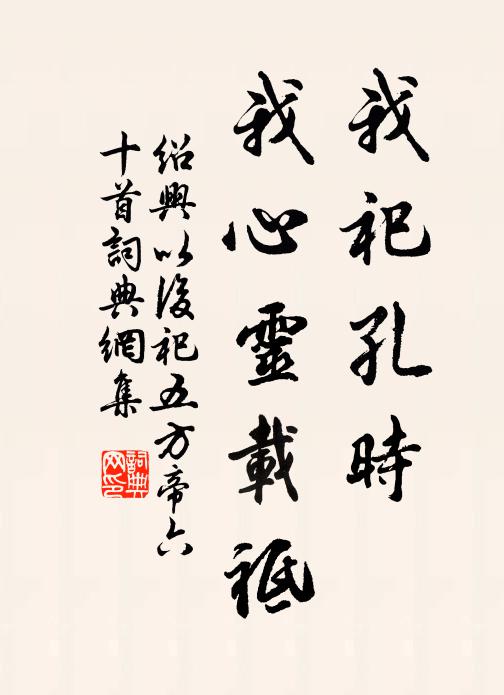 我祀孔時
我心靈載祗
紹興以後祀五方帝六
十首詞典網集
詞典
网印